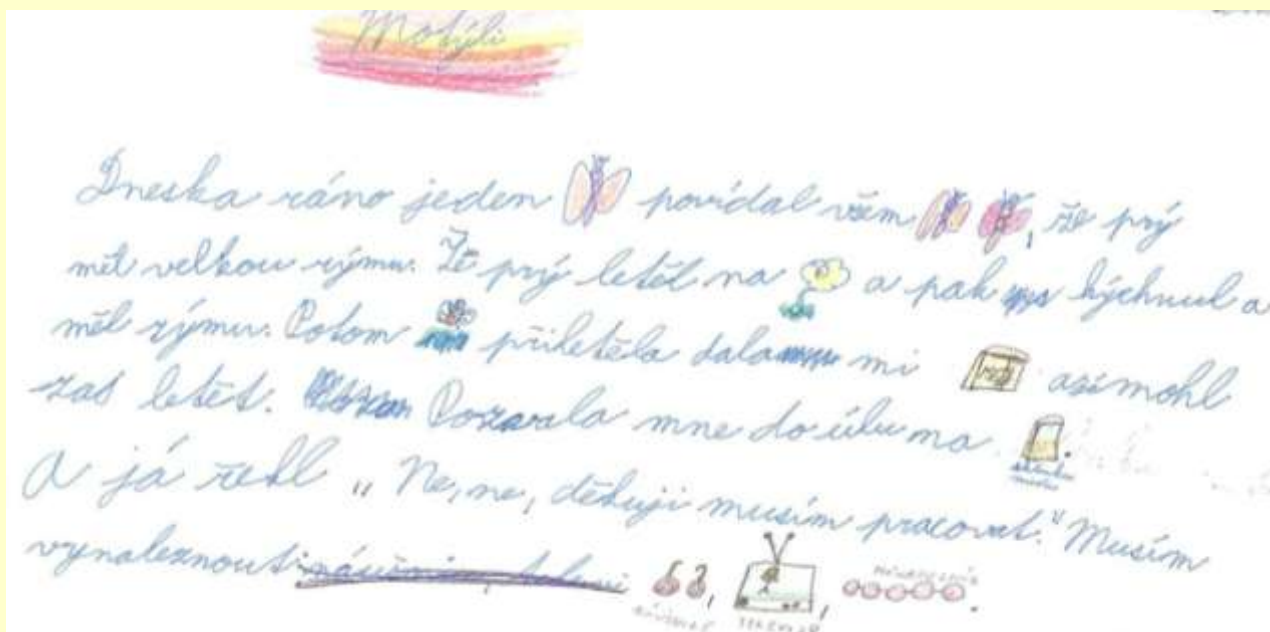 Motýli
Dneska ráno jeden povídal všem , že prý
měl velkou rýmu. Že prý letěl na a pak kýchnul a
měl rýmu. Potom přiletěla dala mi a zas mohl
zas letět. Pozvala mne do úlu na .
A já řekl „Ne, ne, děkuji musím pracovat." Musím
vynaleznout , , .
náušnice televizor